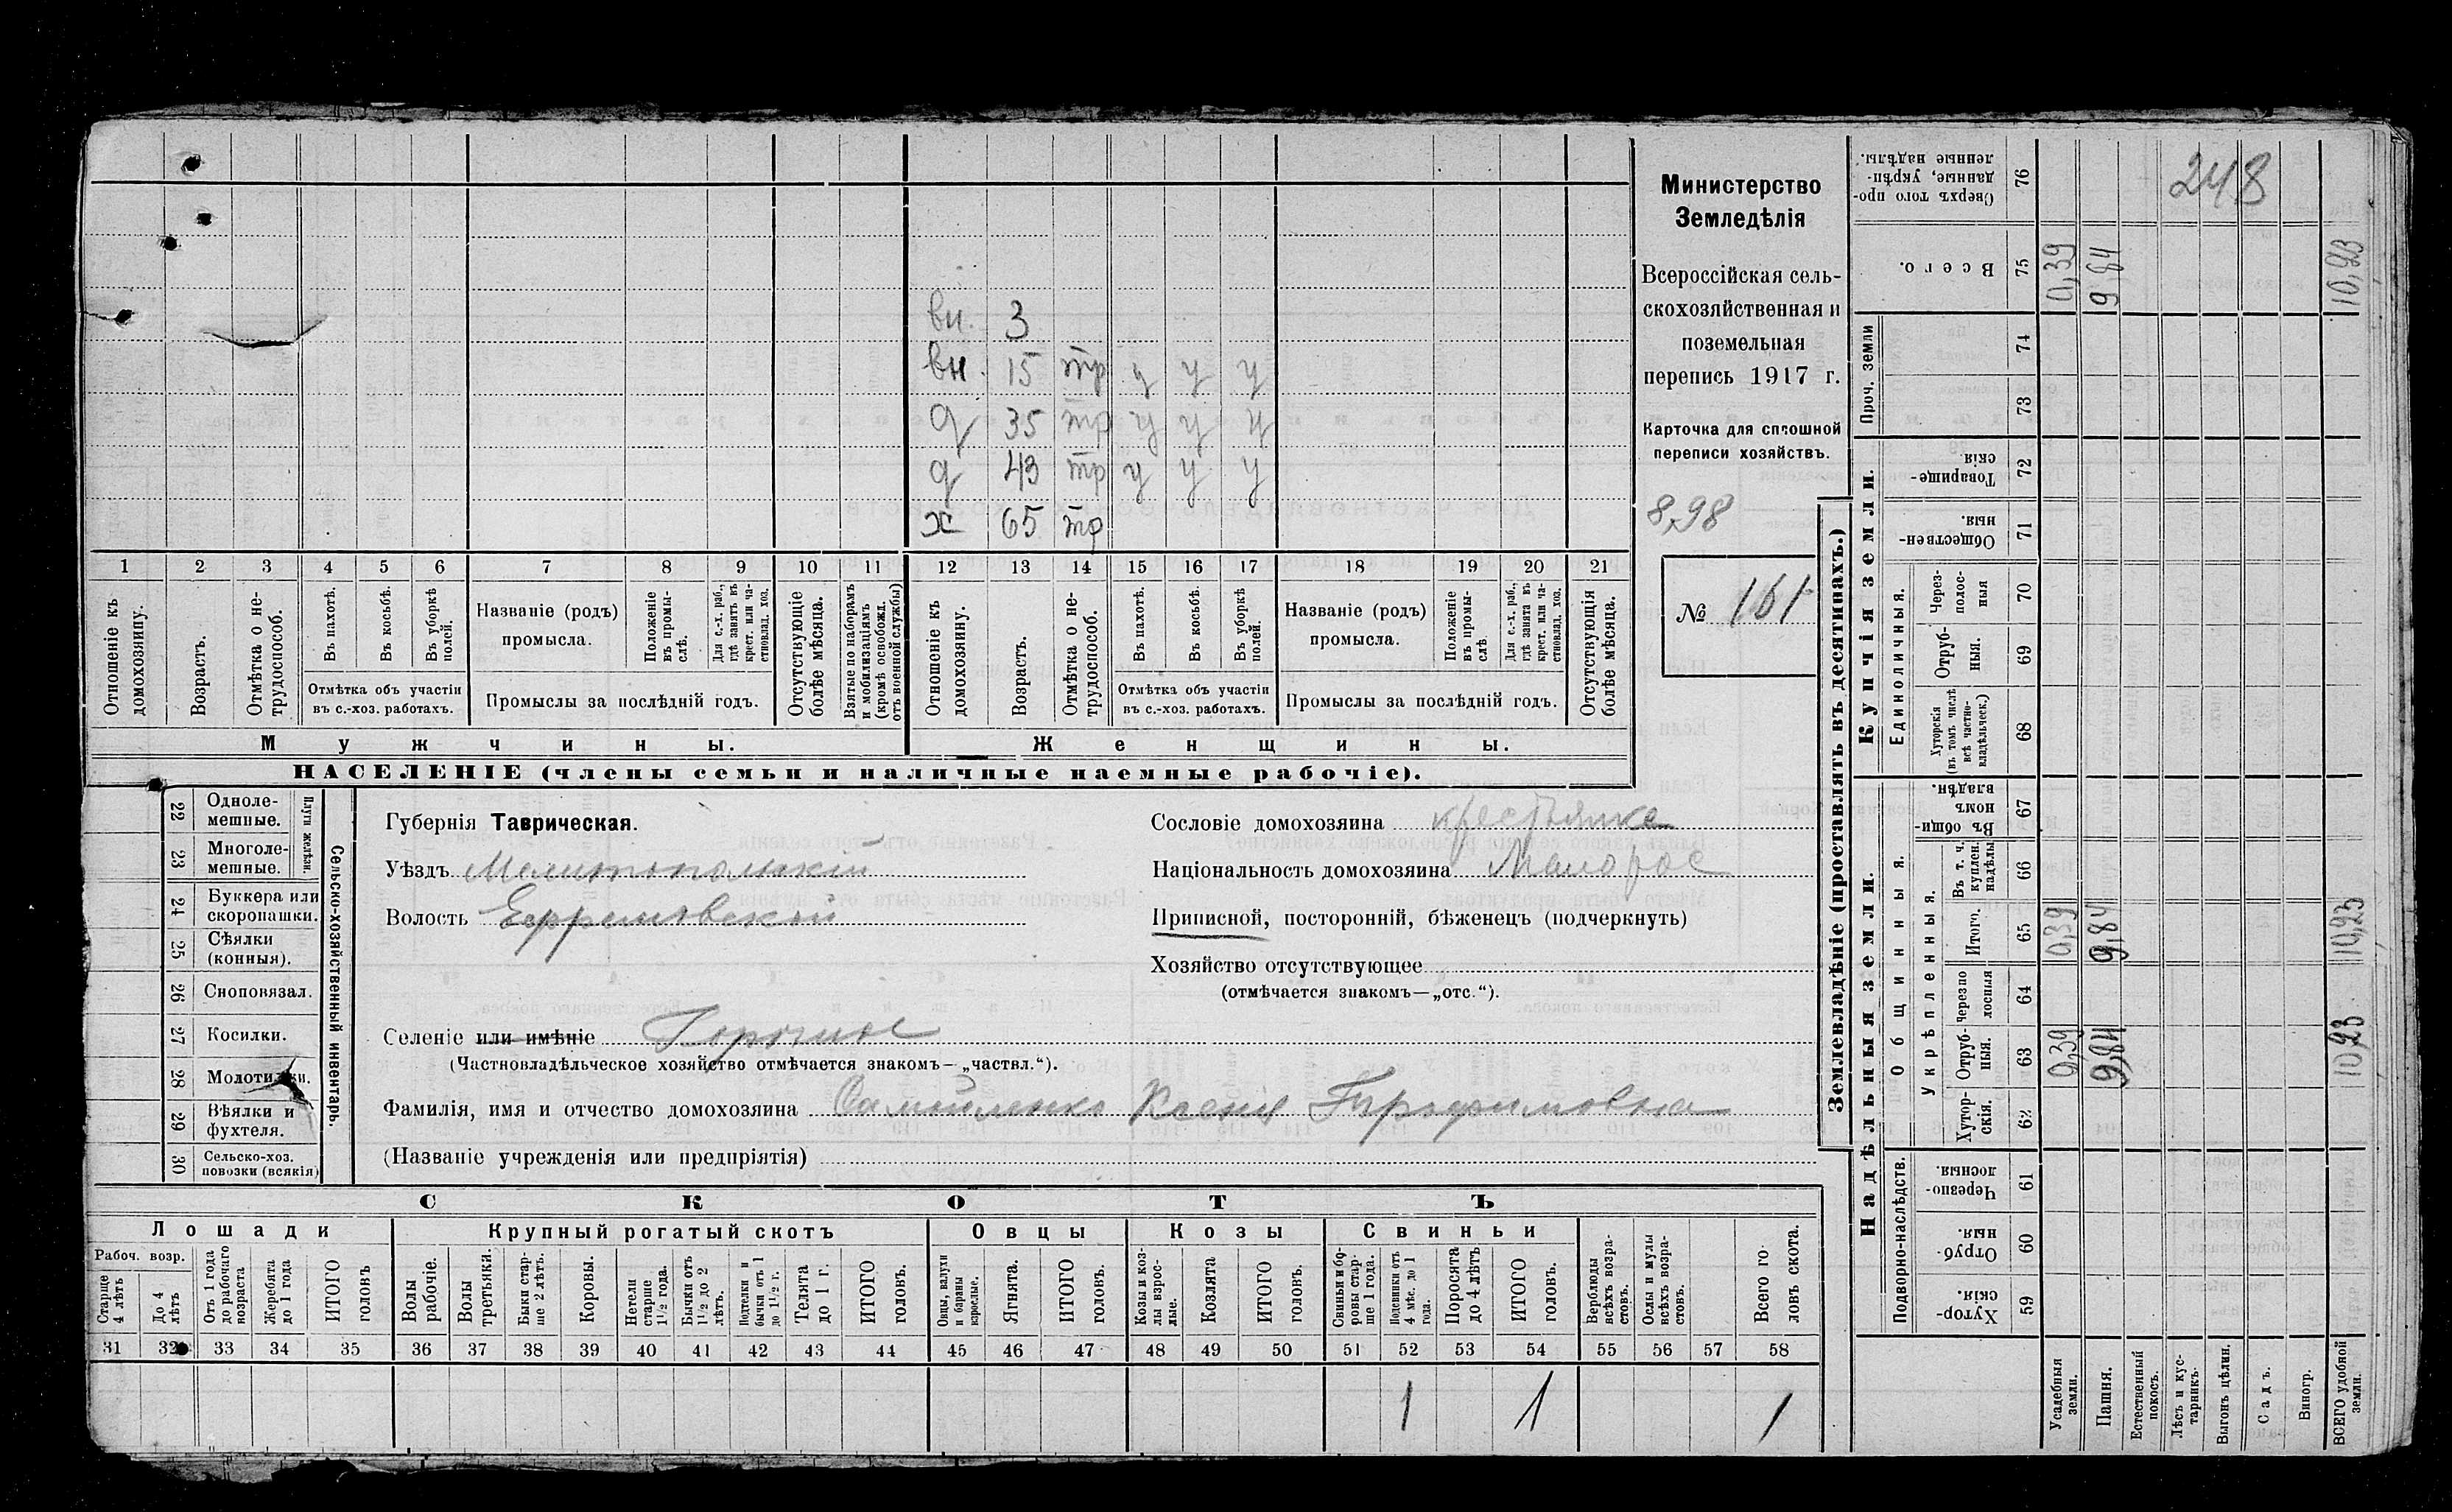 248
Министерство
Земледѣлія
Всероссійская сель-
скохозяйственная и
поземельная
перепись 1917 г.
Карточка для сплошной
переписи хозяйствъ.
8,98
№ 161
вн. 3
вн. 15 тр у у у
д 35 тр у у у
д 43 тр у у у
х 65 тр
1 2 3 4 5 6 7 8 9 10 11 12 13 14 15 16 17 18 19 20 21
Отношеніе къ домохозяину.
Возрастъ.
Отмѣтка о не-трудоспособ.
Въ пахотѣ.
Въ косьбѣ.
Въ уборкѣ полей.
Отмѣтка объ участіи
въ с.-хоз. работахъ.
Названіе (родъ)
промысла.
Положеніе въ промы-слѣ.
Для с.-х. раб., гдѣ занятъ въ крест. или ча-стновлад. хоз.
Промыслы за послѣдній годъ.
Отсутствующіе болѣе мѣсяца.
Взятые по наборамъ и мобилизаціямъ (кромѣ освобожд. отъ военной службы)
Отношеніе къ домохозяину.
Возрастъ.
Отмѣтка о не-трудоспособ.
Въ пахотѣ.
Въ косьбѣ.
Въ уборкѣ полей.
Отмѣтка объ участіи
въ с.-хоз. работахъ.
Названіе (родъ)
промысла.
Положеніе въ промы-слѣ
Для с.-х. раб., гдѣ занята въ крест. или ча-стновлад. хоз.
Промыслы за послѣдній годъ.
Отсутствующія болѣе мѣсяца.
Мужчины.
Женщины.
НАСЕЛЕНІЕ (члены семьи и наличные наемные рабочіе).
22 Одноле-мешные.
23 Многоле-мешные.
Плуги желѣзн.
24 Буккера или скоропашки.
25 Сѣялки (конныя).
26 Сноповязал.
27 Косилки.
28 Молотилки.
29 Вѣялки и фухтеля.
30 Сельско-хоз. повозки (всякія)
Сельско-хозяйственный инвентарь.
Губернія Таврическая.
Уѣздъ Мелитопольскій
Волость Ефремовской
Селеніе или имѣніе Горячое
(Частновладѣльческое хозяйство отмѣчается знакомъ—„частвл.“).
Фамилія, имя и отчество домохозяина Самойленко Ксенія
(Названіе учрежденія или предпріятія)
Сословіе домохозяина крестьянка
Національность домохозяина Малорос
Приписной, посторонній, бѣженецъ (подчеркнуть)
Хозяйство отсутствующее
(отмѣчается знакомъ—„отс.“).
СКОТЪ
Лошади
Крупный рогатый скотъ
Овцы
Козы
Свиньи
Рабоч. возр.
Старше 4 лѣтъ
До 4 лѣтъ
Отъ 1 года до рабочаго возраста
Жеребята до 1 года
ИТОГО головъ
Волы рабочіе.
Волы третьяки.
Быки стар-ше 2 лѣтъ.
Коровы.
Нетели старше 1½ года.
Бычки отъ 1½ до 2 лѣтъ.
Подтелки и бычки отъ 1 до 1½ г.
Телята до 1 г.
ИТОГО головъ.
Овцы, валухи и бараны взрослые.
Ягнята.
ИТОГО головъ.
Козы и коз-лы взрос-лые.
Козлята
ИТОГО головъ.
Свиньи и бо-ровы стар-ше 1 года.
Подсвинки отъ 4 мѣс. до 1 года.
Поросята до 4 лѣтъ
ИТОГО головъ.
Верблюды всѣхъ возра-стовъ.
Ослы и мулы всѣхъ возра-стовъ.
Всего го-ловъ скота.
31 32 33 34 35 36 37 38 39 40 41 42 43 44 45 46 47 48 49 50 51 52 53 54 55 56 57 58
1 1 1
Землевладѣніе (проставлять въ десятинахъ.)
Надѣльныя земли.
Купчія земли.
Проч. земли
Подворно-наслѣдств.
Общинныя.
Укрѣпленныя.
Единоличныя.
Хутор-скія. 59
Отруб-ныя. 60
Черезпо-лосныя. 61
Хутор-скія. 62
Отруб-ныя. 63 0,39 9,84 10,23
Черезпо лосныя 64
Итого. 65 0,39 9,84 10,23
Въ т. ч. куплен. надѣлы 66
Въ общи-номъ владѣн. 67
Хуторскія (въ томъ числѣ всѣ частно-владѣльческ.) 68
Отруб-ныя. 69
Через-полос-ныя 70
Обществен-ныя. 71
Товарище-скія. 72
73
74
Всего. 75 0,39 9,84 10,23
Сверхъ того про-данные, укрѣп-ленные надѣлы. 76
Усадебныя земли.
Пашня.
Естественный покосъ.
Лѣсъ и кус-тарникъ.
Выгонъ цѣлин.
Садъ.
Виногр.
ВСЕГО удобной земли.